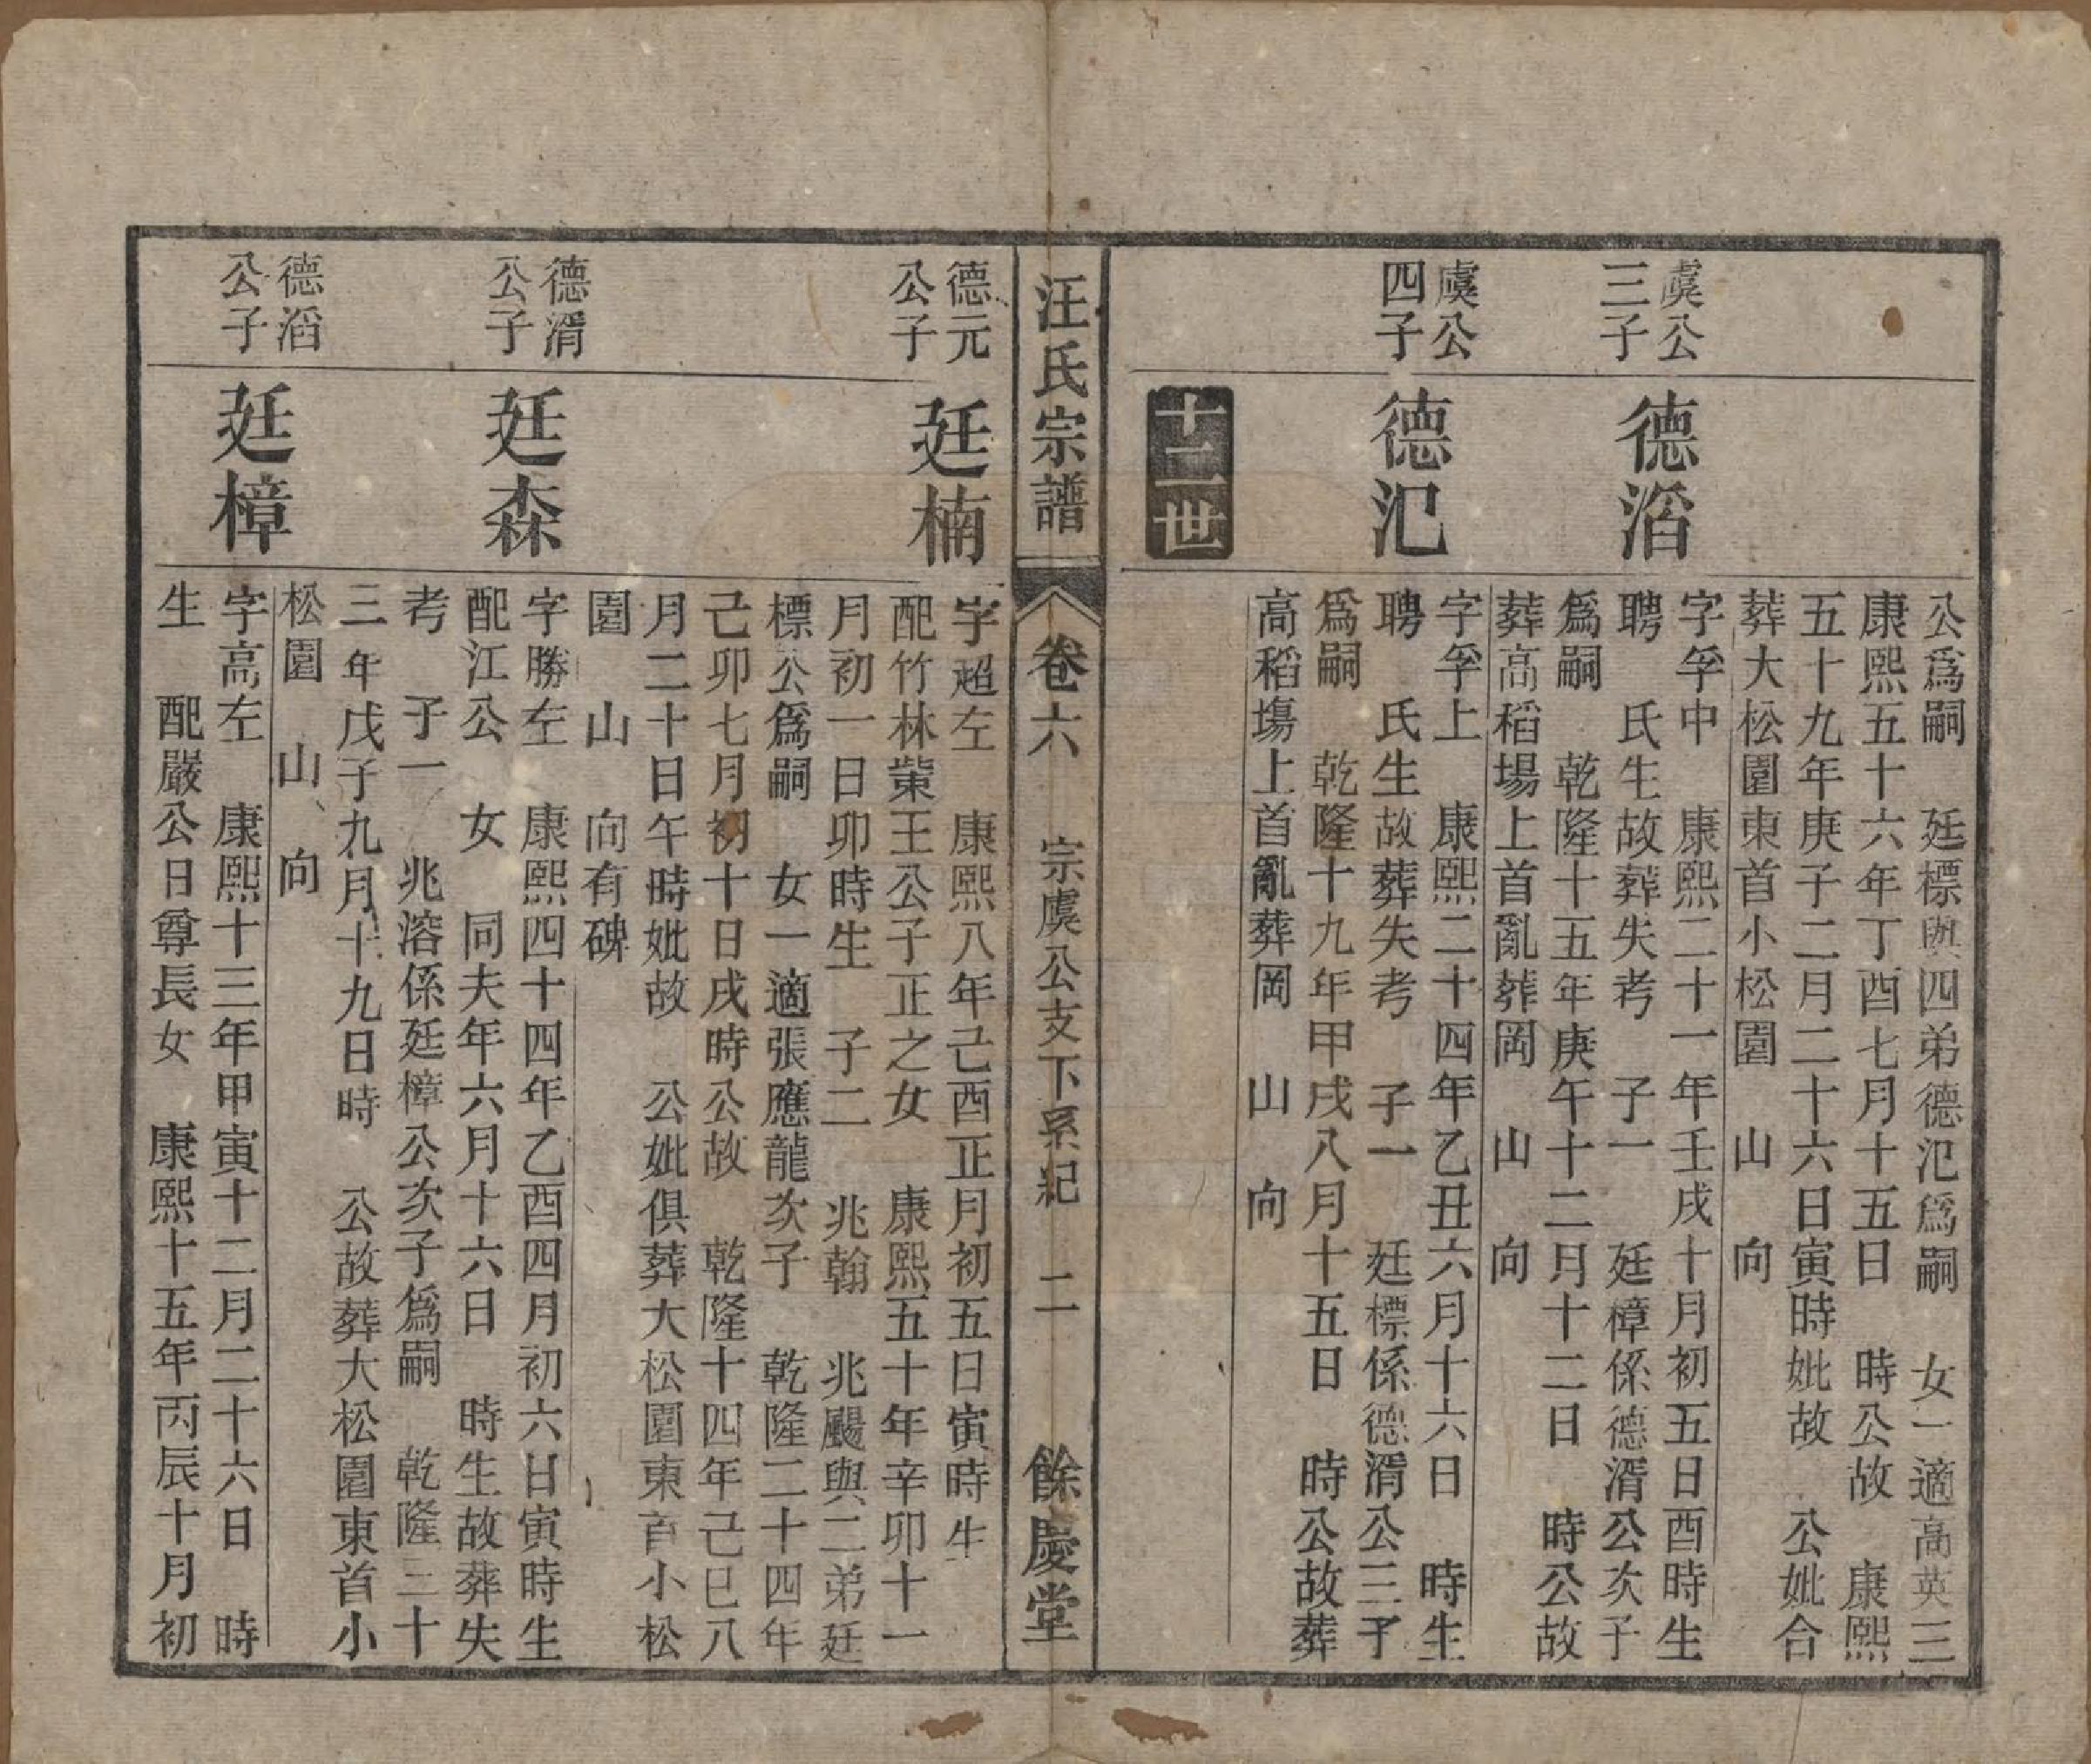 公爲嗣　廷標與四弟德汜爲嗣　女一適高英三
康熙五十六年丁酉七月十五日　時公故　康熙
五十九年庚子二月二十六日寅時妣故　公妣合
葬大松園東首小松園　山　向
虞公
三子
德滔
字孚中　康熙二十一年壬戌十月初五日酉時生
聘　氏生故葬失考　子一　廷樟係德湑公次子
爲嗣　乾隆十五年庚午十二月十二日　時公故
葬高稻場上首亂葬岡　山　向
虞公
四子
德汜
字孚上　康熙二十四年乙丑六月十六日　時生
聘　氏生故葬失考　子一　廷標係德湑公三子
爲嗣　乾隆十九年甲戌八月十五日　時公故葬
高稻塲上首亂葬岡　山　向
十二世
汪氏宗譜
卷六　宗虞公支下系紀　二　餘慶堂
德元
公子
廷楠
字超左　康熙八年己酉正月初五日寅時生
配竹林棠王公子正之女　康熙五十年辛卯十一
月初一日卯時生　子二　兆翰　兆颺與二弟廷
標公爲嗣　女一適張應龍次子　乾隆二十四年
己卯七月初十日戌時公故　乾隆十四年己巳八
月二十日午時妣故　公妣俱葬大松園東首小松
園　山　向有碑
德湑
公子
廷森
字勝左　康熙四十四年乙酉四月初六日寅時生
配江公　女　同夫年六月十六日　時生故葬失
考　子一　兆溶係廷樟公次子爲嗣　乾隆三十
三年戊子九月十九日時　公故葬大松園東首小
松園　山　向
德滔
公子
廷樟
字高左　康熙十三年甲寅十二月二十六日　時
生　配嚴公日尊長女　康熙十五年丙辰十月初